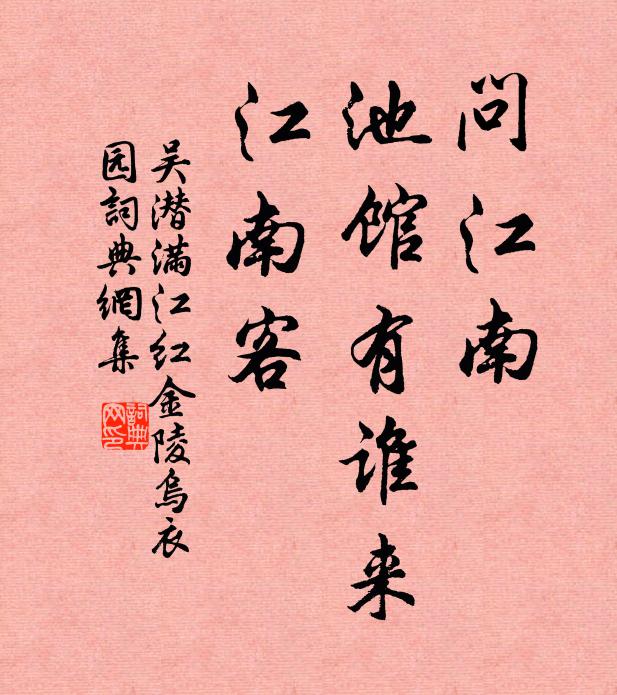 问江南
池馆有谁来
江南客
吴潜满江红金陵乌衣
园詞典網集
詞典网印